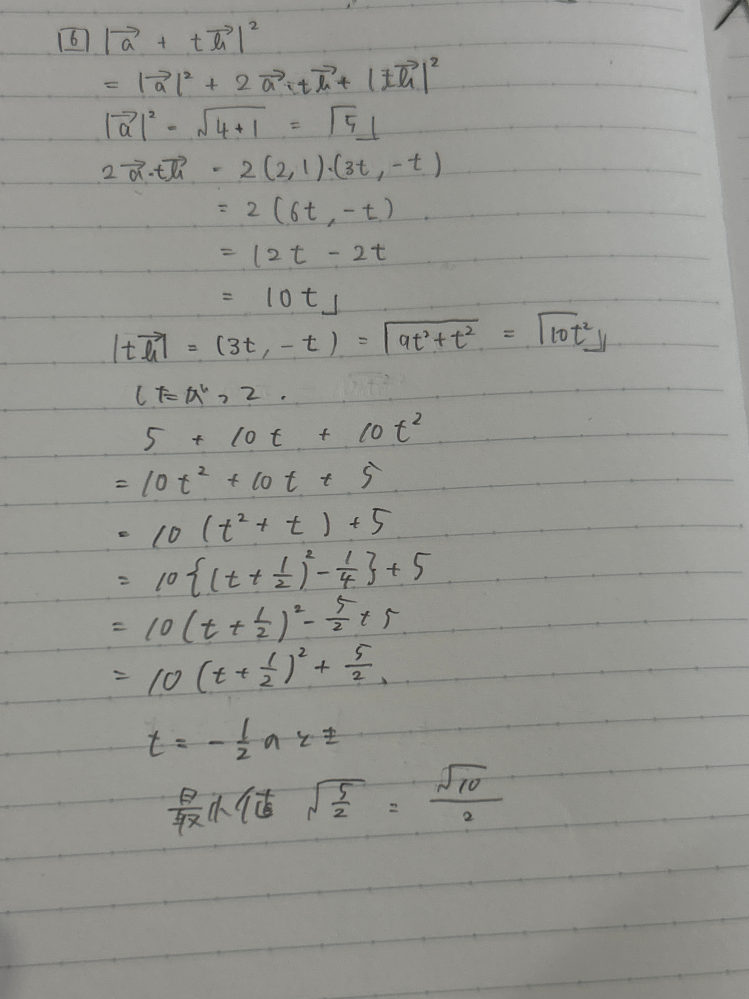 6 |a⃗ + tb⃗|²
= |a⃗|² + 2a⃗·tb⃗ + |tb⃗|²
|a⃗|² = √4+1 = √5」
2a⃗·tb⃗ = 2(2,1)·(3t, -t)
= 2(6t, -t)
= 12t - 2t
= 10t」
|tb⃗| = (3t, -t) = √9t²+t² = √10t²」
したがって.
5 + 10t + 10t²
= 10t² + 10t + 5
= 10(t² + t) + 5
= 10{(t + 1/2)² - 1/4} + 5
= 10(t + 1/2)² - 5/2 + 5
= 10(t + 1/2)² + 5/2、
t = -1/2 のとき
最小値 √5/2 = √10/2